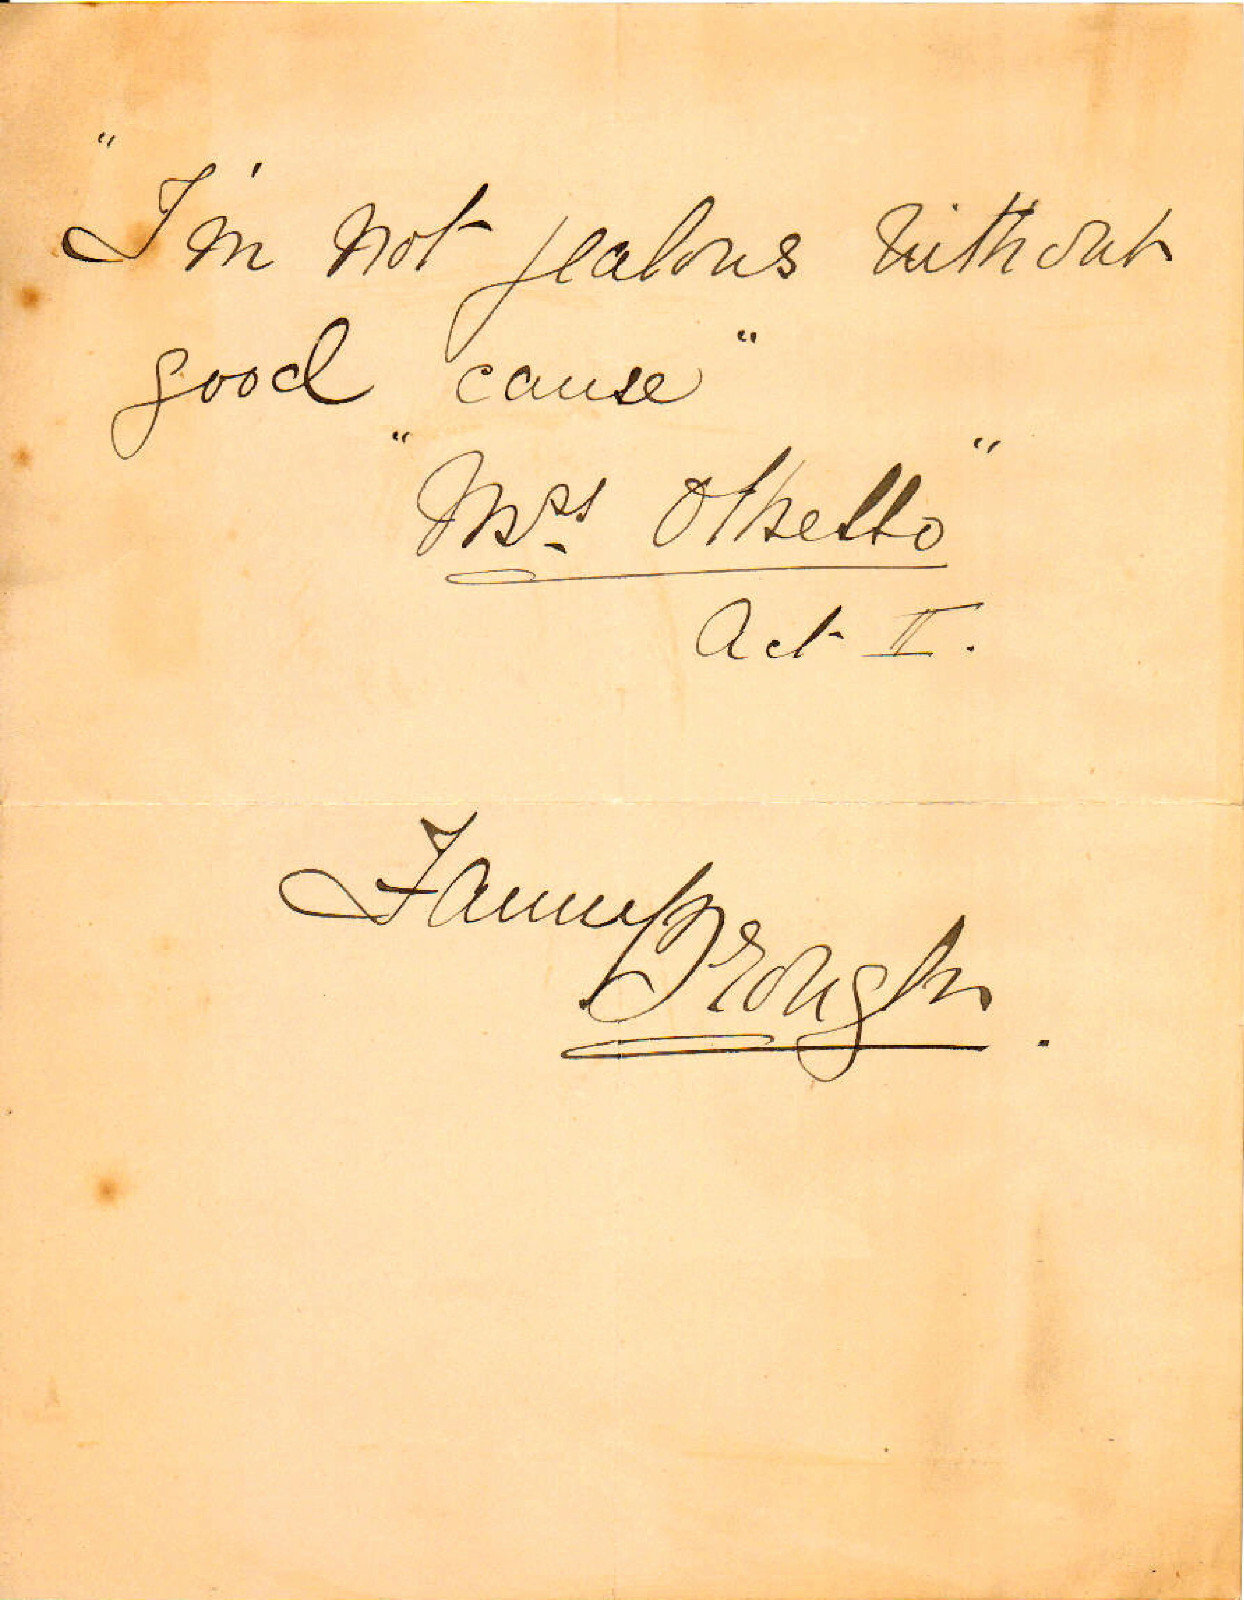 "I'm not jealous without
good cause"
"Mrs. Othello"
Act II.
Fanny Brough.